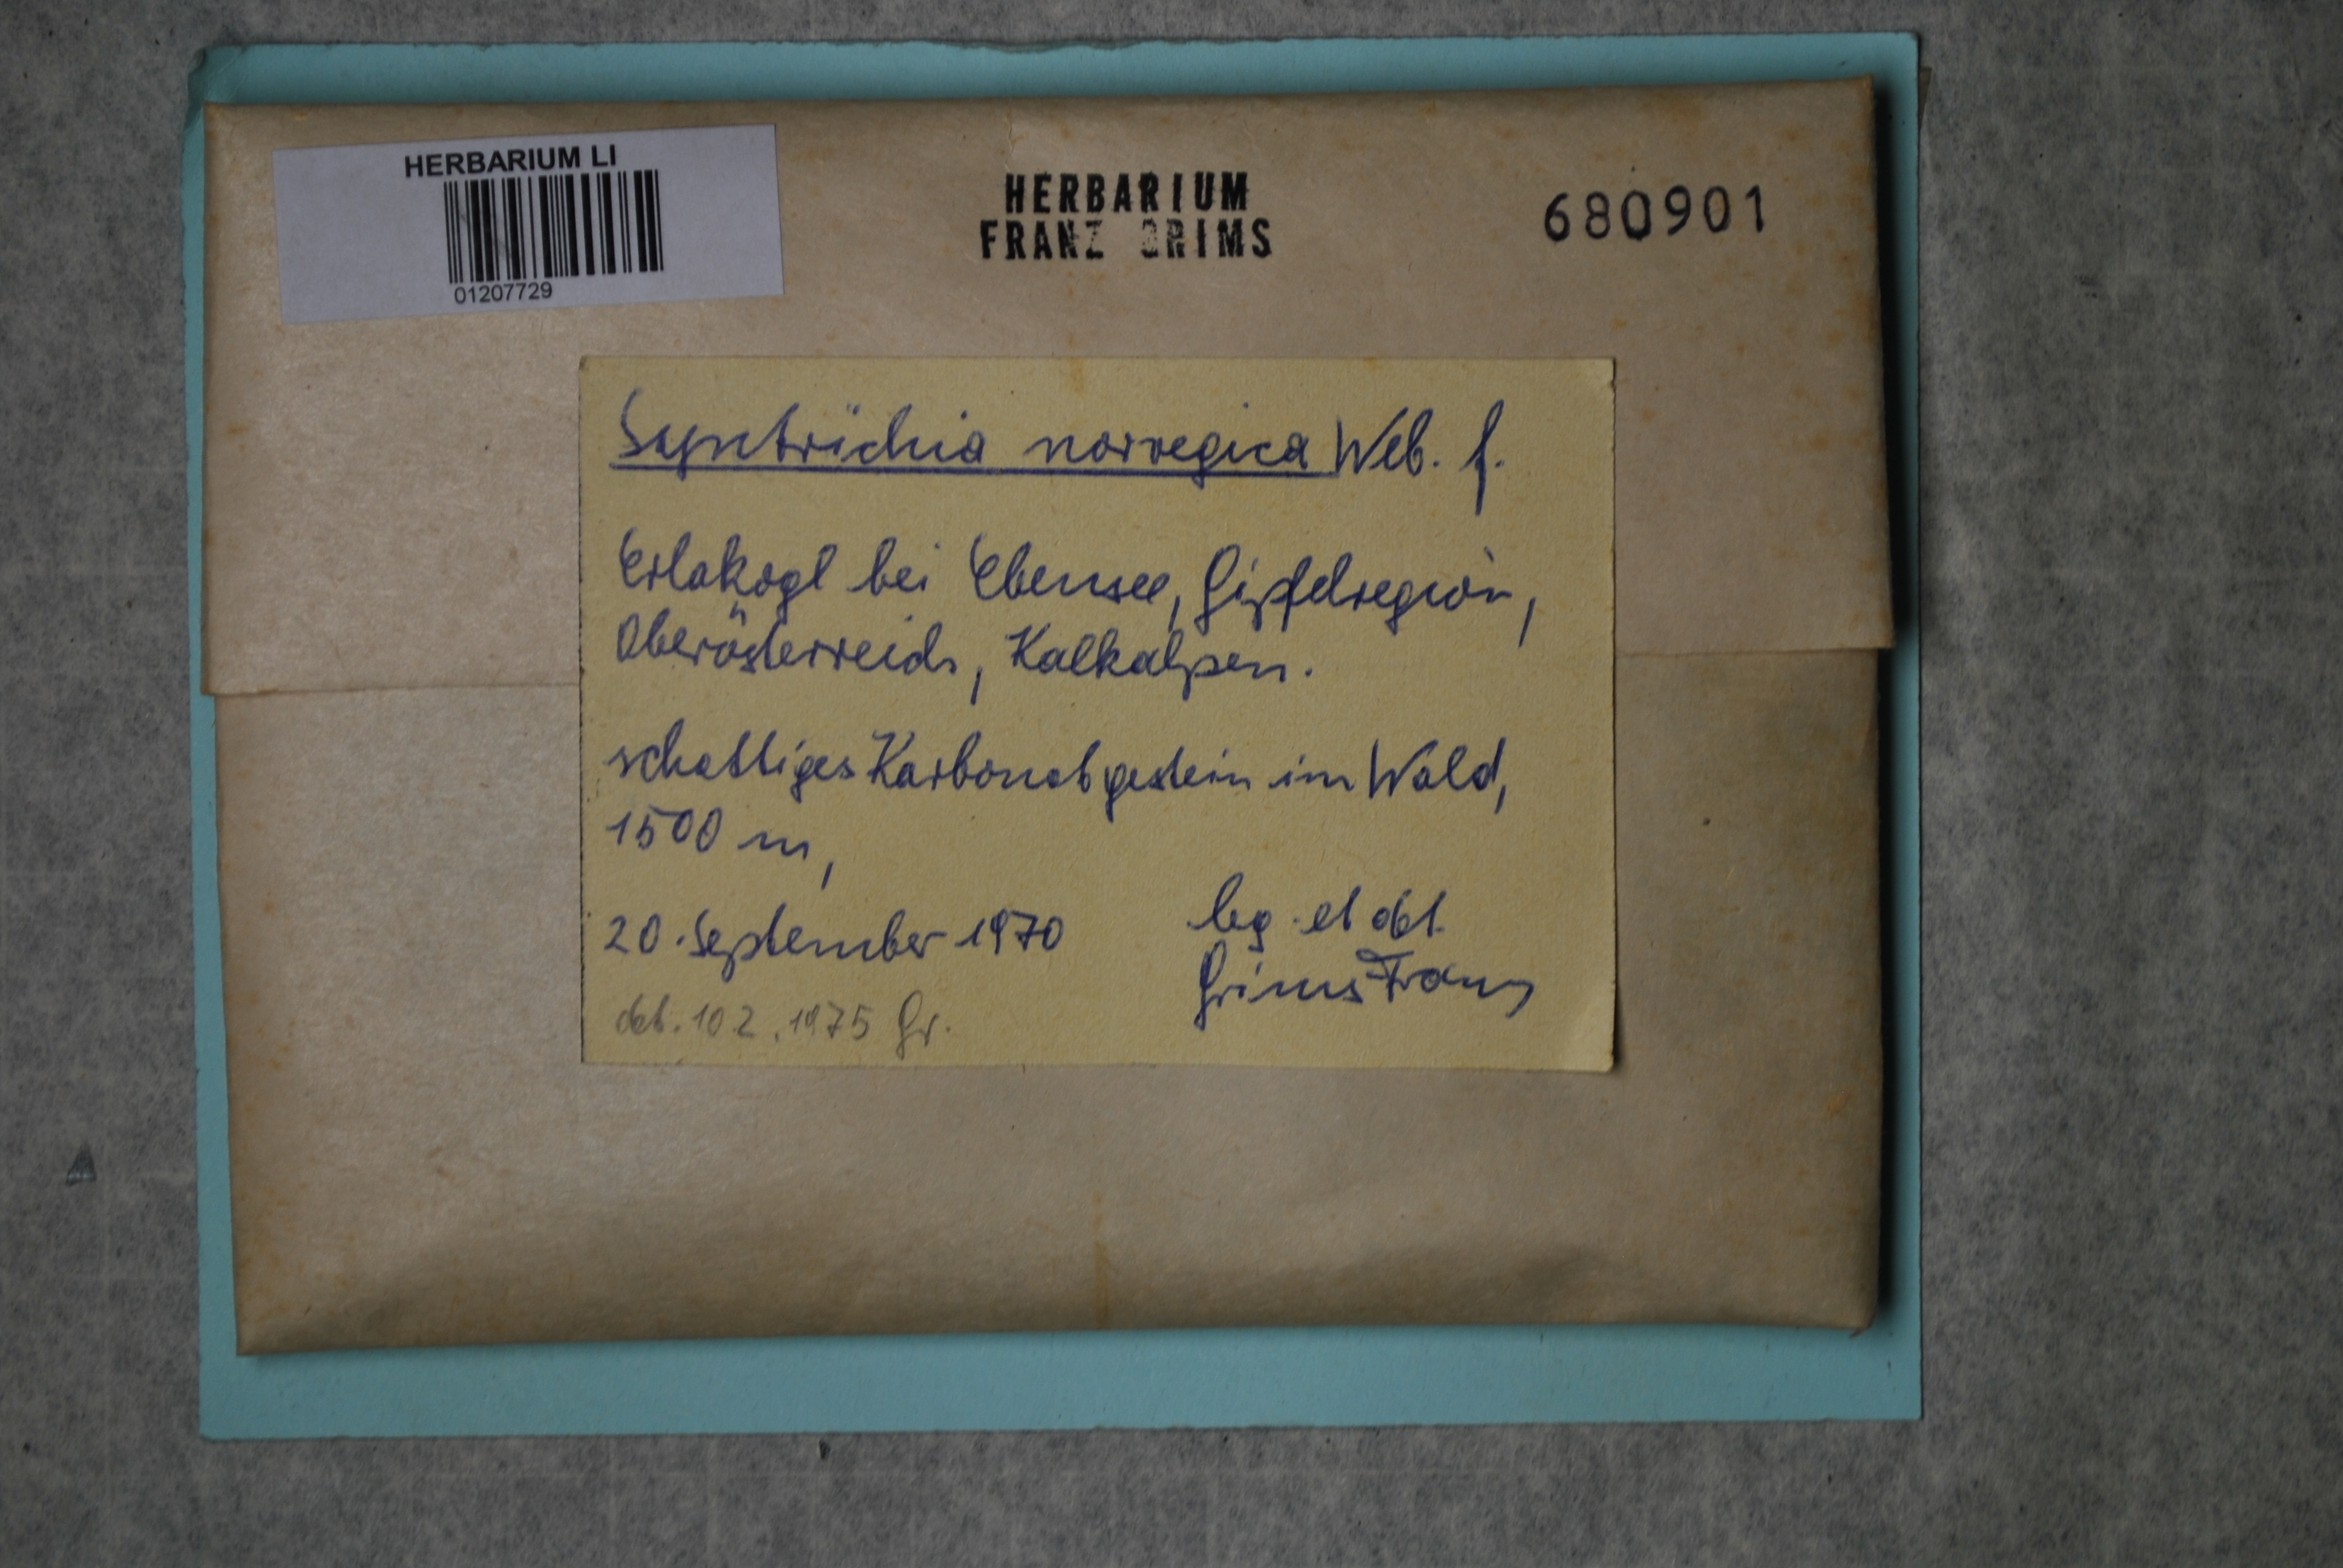 HERBARIUM LI
01207729
HERBARIUM
FRANZ GRIMS
680901
Syntrichia norvegica Web. f.
Erlakogl bei Ebensee, Gipfelregion,
Oberösterreich, Kalkalpen.
schattiges Karbonatgestein im Wald,
1500 m,
20. September 1970
leg. et det.
Grims Franz
det. 10 2. 1975 Gr.